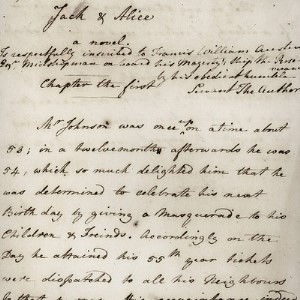 Jack & Alice
a novel.
Is respectfully inscribed to Francis William Austen
Esqr Midshipman on board his Majesty's Ship the Perse-
verance
by his obedient humble
Servant The Author
Chapter the first
Mr Johnson was once upon a time about
53; in a twelvemonth afterwards he was
54, which so much delighted him that he
was determined to celebrate his next
Birth day by giving a Masquerade to his
Children & Freinds. Accordingly on the
Day he attained his 55th year tickets
were dispatched to all his Neighbours